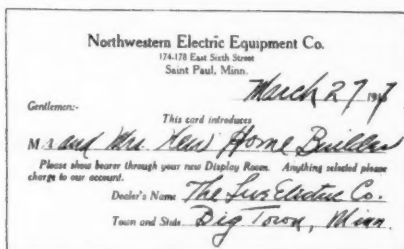 Northwestern Electric Equipment Co.
174-178 East Sixth Street
Saint Paul, Minn.
March 27 1917
Gentlemen:-
This card introduces
M r and Mrs. New Home Builder
Please show bearer through your new Display Room. Anything selected please
charge to our account.
Dealer's Name The Live Electric Co.
Town and State Big Town, Minn.